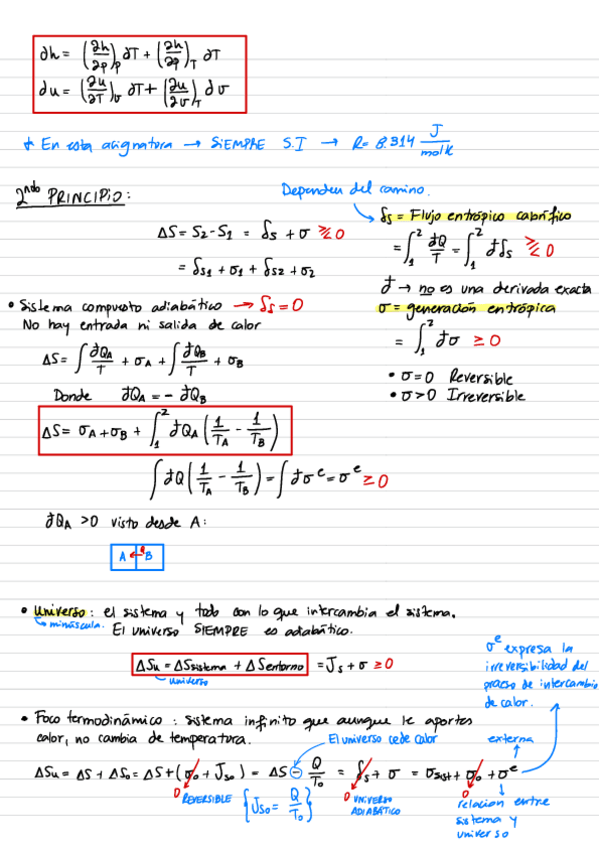 ∂h = (∂h/∂p)_p ∂T + (∂h/∂p)_T ∂T
du = (∂u/∂T)_v ∂T + (∂u/∂v)_T dv
* En esta asignatura → SIEMPRE S.I → R= 8.314 J/molK
2ndo PRINCIPIO:
Dependen del camino.
ΔS = S2 - S1 = ∫s + σ ⋛ 0
= ∫s1 + σ1 + ∫s2 + σ2
∫s = Flujo entrópico calorífico
= ∫₁² đQ/T = ∫₁² đ∫s ⋛ 0
đ → no es una derivada exacta
σ = generación entrópica
= ∫₁² đσ ≥ 0
• σ=0 Reversible
• σ>0 Irreversible
• Sistema compuesto adiabático → ∫s = 0
No hay entrada ni salida de calor
ΔS = ∫ đQA/T + σA + ∫ đQB/T + σB
Donde đQA = - đQB
ΔS = σA + σB + ∫₁² đQA (1/TA - 1/TB)
∫ đQ (1/TA - 1/TB) = ∫ đσ^e = σ^e ≥ 0
đQA > 0 visto desde A:
A ← Q B
• Universo: el sistema y todo con lo que intercambia el sistema.
minúscula.
El universo SIEMPRE es adiabático.
ΔSu = ΔSsistema + ΔSentorno = Js + σ ≥ 0
universo
σ^e expresa la
irreversibilidad del
proceso de intercambio
de calor.
• Foco termodinámico: sistema infinito que aunque le aportes
calor, no cambia de temperatura.
El universo cede calor
externa
ΔSu = ΔS + ΔS0 = ΔS + (σ0 + Js0) = ΔS - Q/T0 = ∫s + σ = σsist + σ0 + σ^e
0 REVERSIBLE
{Js0 = Q/T0}
0 UNIVERSO
ADIABÁTICO
0
relación entre
sistema y
universo